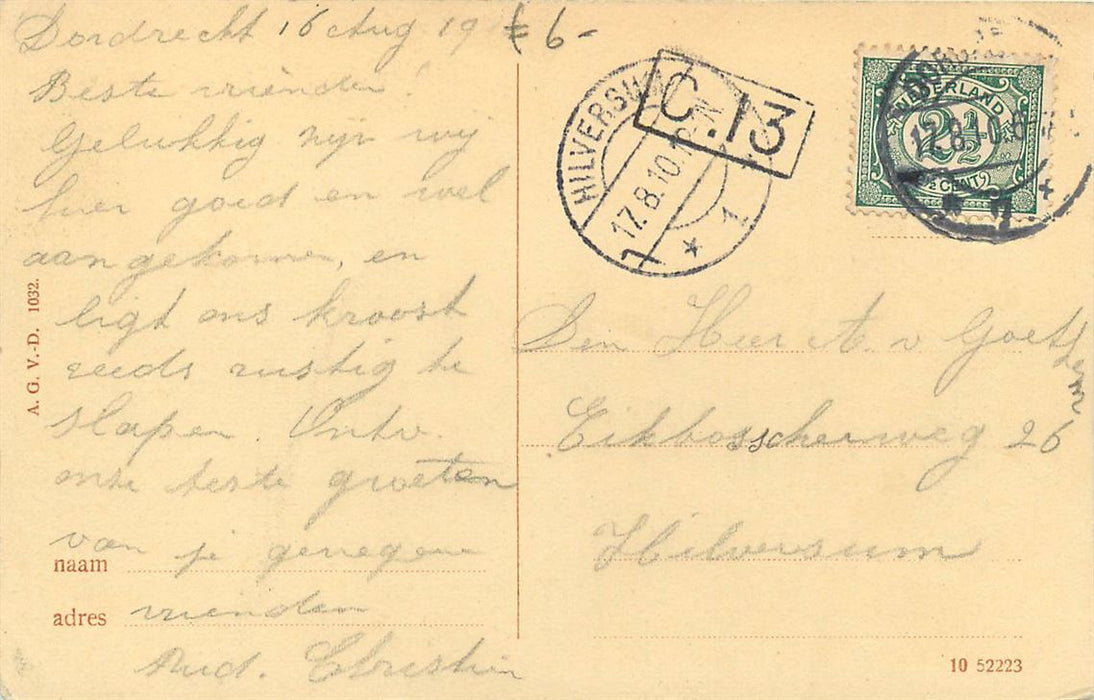 Dordrecht 16 Aug 19
€ 6-
Beste vrienden!
Gelukkig zijn wij
hier goed en wel
aangekomen, en
ligt ons kroost
reeds rustig te
slapen. Ontv.
onze beste groeten
van je genegene
vrienden
Christien
naam
adres
A. G. V.-D. 1032.
HILVERSUM
17.8.10.
1
C.13
NEDERLAND
2½
CENT
DOR
17.8.10.
Den Heer A. v Goethem
Eikbosscherweg 26
Hilversum
10 52223